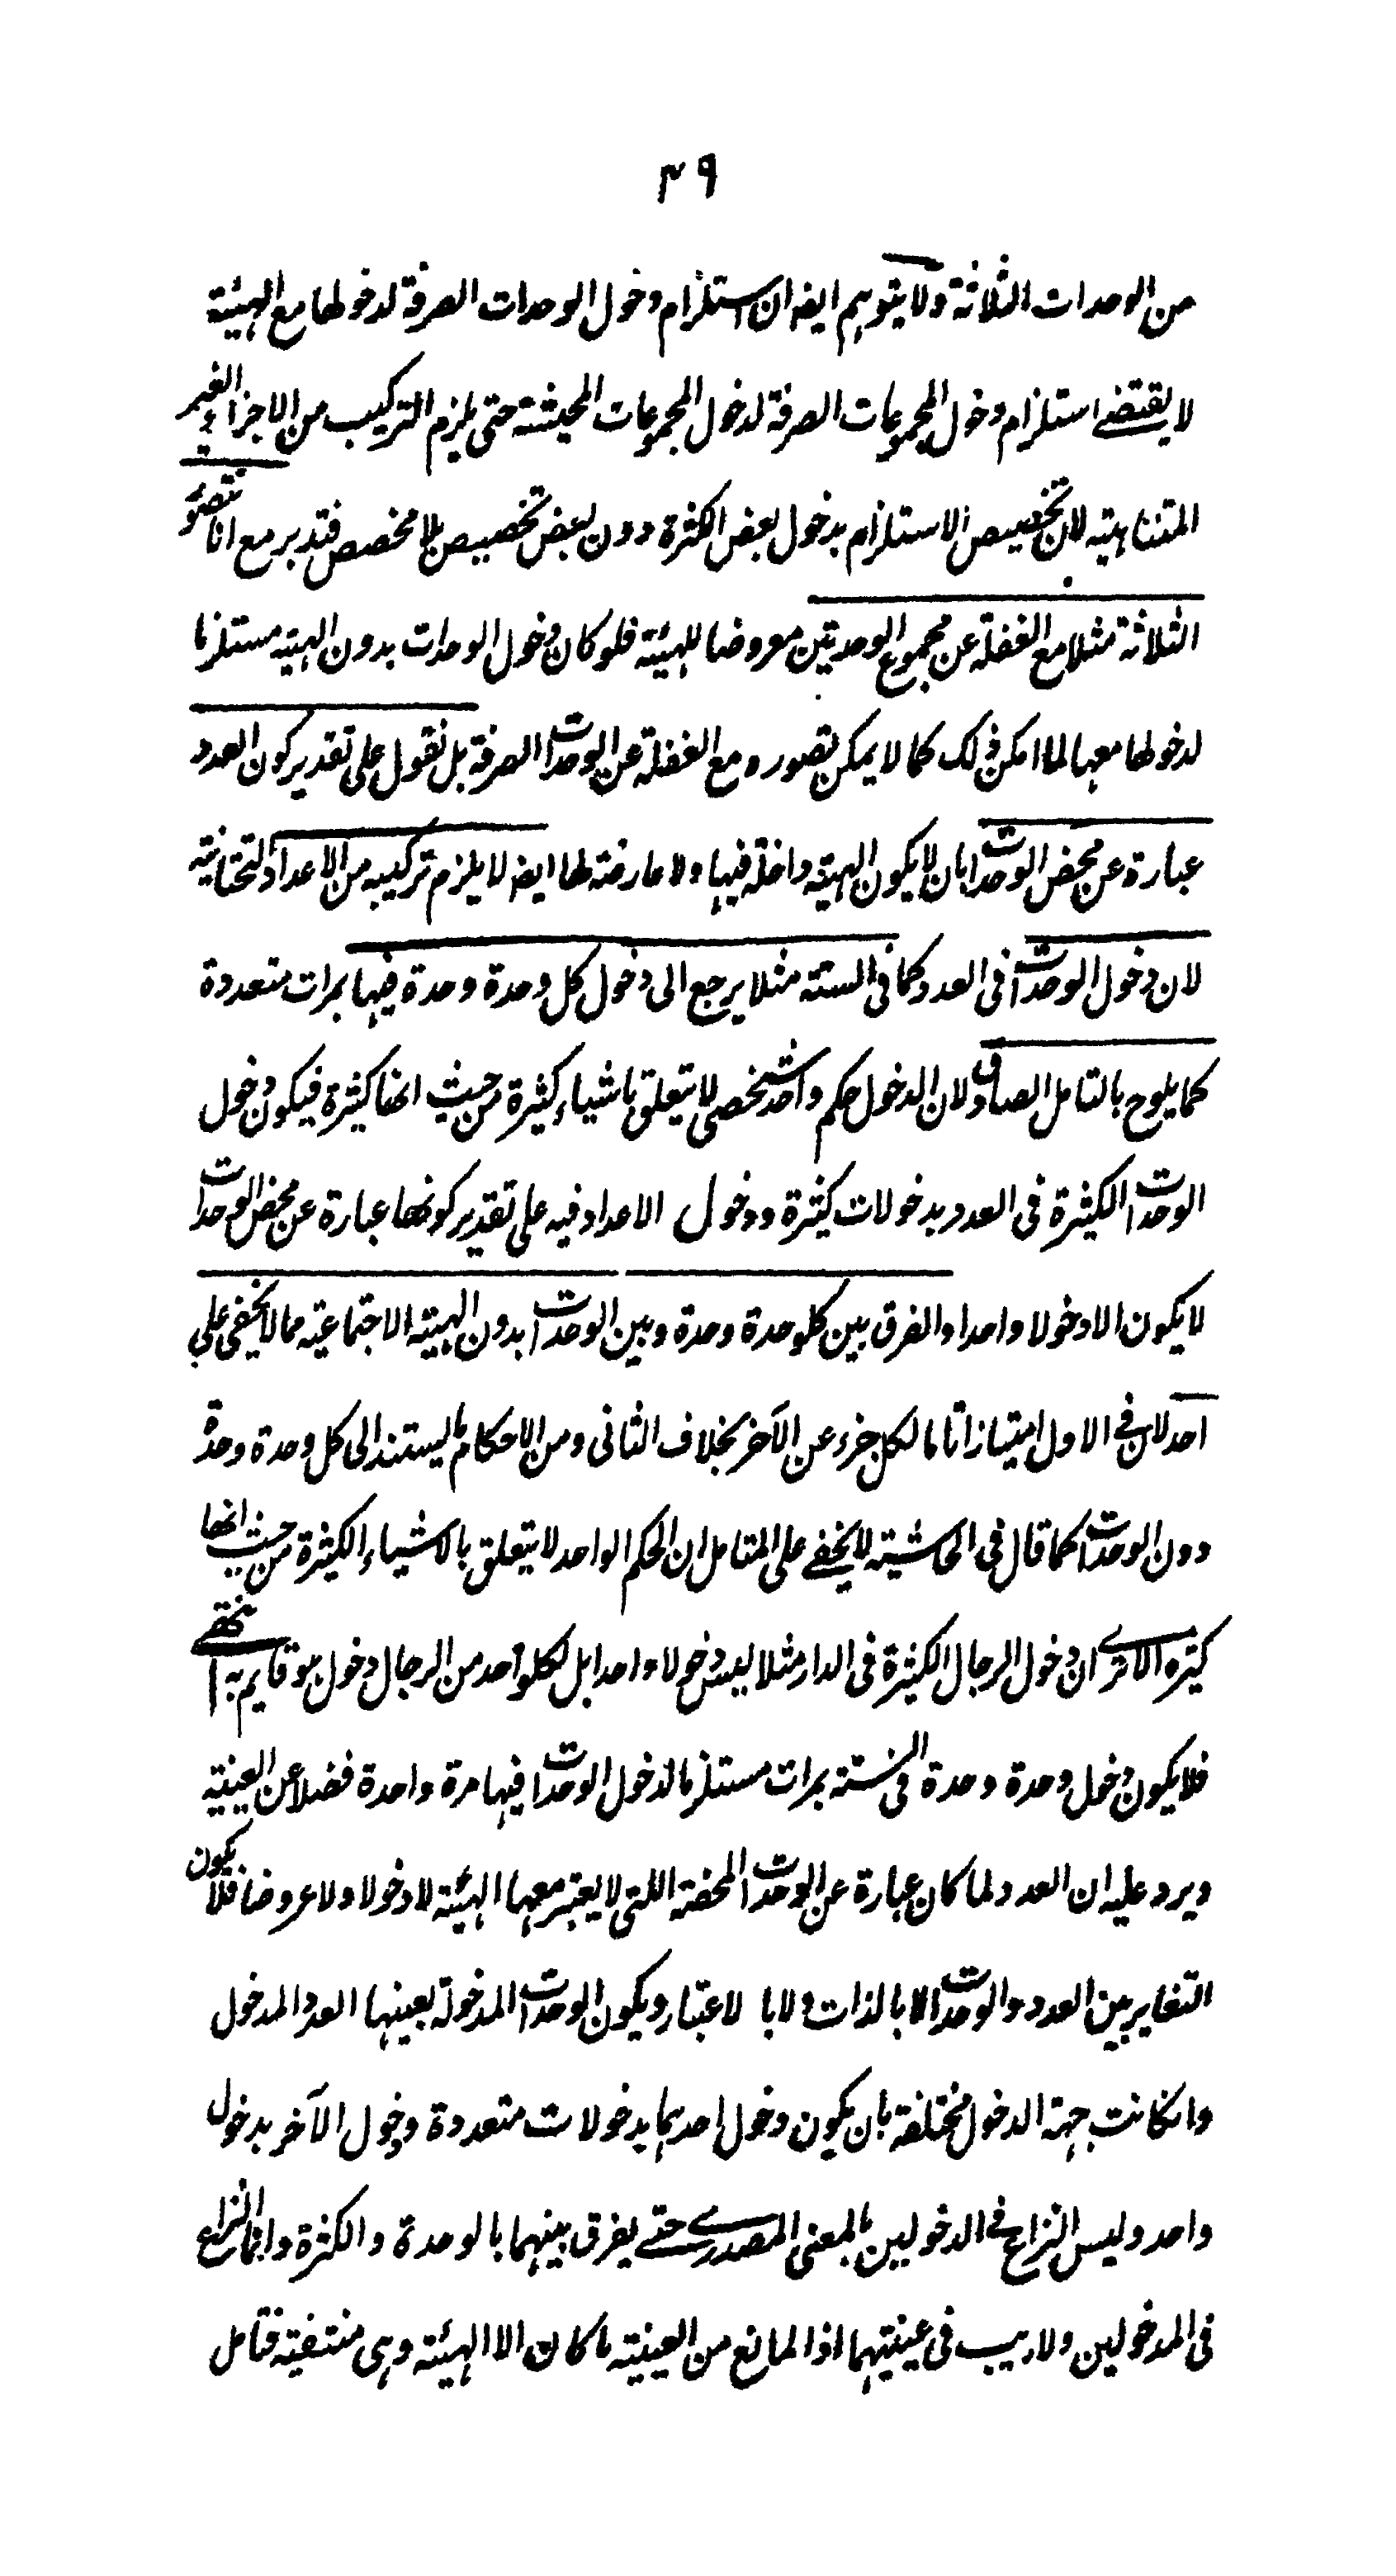 ٣٩
من الوحدات الثلاثة ولا يتوهم ايضا ان استلزام دخول الوحدات الصرفة لدخولها مع الهيئة
لا يقتضے استلزام دخول المجموعات الصرفة لدخول المجموعات المحيثة حتى يلزم التركيب من الاجزاء الغير
المتناهية لان تخصيص الاستلزام بدخول بعض الكثرة دون بعض تخصيص بلا مخصص فتدبر مع انا نتصور
الثلاثة مثلا مع الغفلة عن مجموع الوحدتين معروضا للهيئة فلو كان دخول الوحدات بدون الهيئة مستلزما
لدخولها معها لما امكن ذلك كما لا يمكن تصوره مع الغفلة عن الوحدات الصرفة بل نقول على تقدير كون العدد
عبارة عن محض الوحدات بان لا يكون الهيئة داخلة فيها ولا عارضة لها ايضا لا يلزم تركيبه من الاعداد التحتانية
لان دخول الوحدات فى العدد كما فى الستة مثلا يرجع الى دخول كل وحدة وحدة فيها بمرات متعددة
كما يلوح بالتامل الصادق ولان الدخول حكم واحد شخصى لا يتعلق باشياء كثيرة من حيث انها كثيرة فيكون دخول
الوحدات الكثيرة فى العدد بدخولات كثيرة ودخول الاعداد فيه على تقدير كونها عبارة عن محض الوحدات
لا يكون الا دخولا واحدا والفرق بين كل وحدة وحدة وبين الوحدات بدون الهيئة الاجتماعية مما لا يخفى على
احد لان فے الاول امتيازا تاما لكل جزء عن الآخر بخلاف الثانى ومن الاحكام ما يستند الى كل وحدة وحدة
دون الوحدات كما قال فى الحاشية لا يخفے على المتامل ان الحكم الواحد لا يتعلق بالاشياء الكثيرة من حيث انها
كثيرة الا ترے ان دخول الرجال الكثيرة فى الدار مثلا ليس دخولا واحدا بل لكل واحد من الرجال دخول هو قايم به انتهے
فلا يكون دخول وحدة وحدة فى الستة بمرات مستلزما لدخول الوحدات فيها مرة واحدة فضلا عن العينية
ويرد عليه ان العدد لما كان عبارة عن الوحدات المحضة اللتى لا يعتبر معها الهيئة لا دخولا ولا عروضا فلا يكون
التغاير بين العدد والوحدات الا بالذات ولا بالاعتبار ويكون الوحدات المدخولة بعينها العدد المدخول
وانكانت جهة الدخول مختلفة بان يكون دخول احدهما بدخولات متعددة ودخول الآخر بدخول
واحد وليس النزاع فے الدخولين بالمعنى المصدرے حتے يفرق بينهما بالوحدة والكثرة وانما النزاع
فى المدخولين ولا ريب فى عينيتهما اذ المانع من العينية ما كان الا الهيئة وهى منتفية فتامل